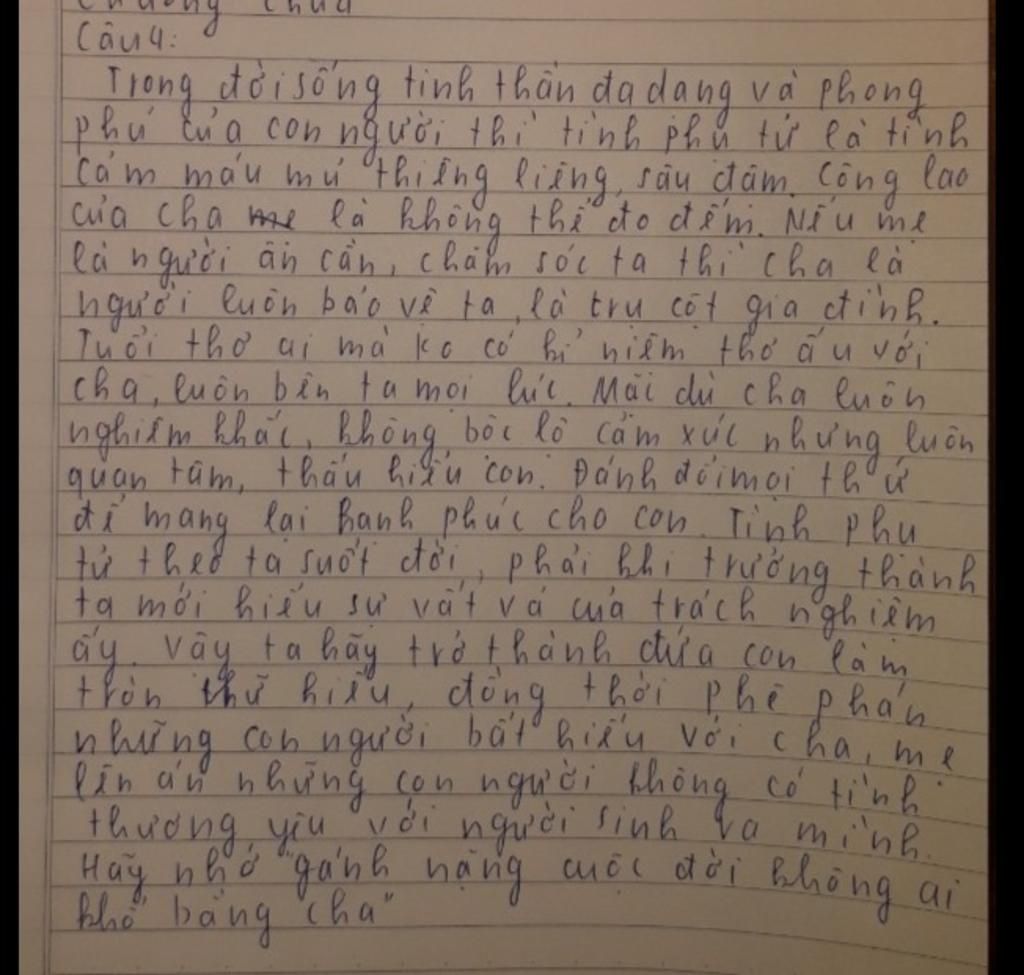 Chương chưa
Câu 4:
Trong đời sống tinh thần đa dạng và phong
phú của con người thì tình phụ tử là tình
cảm máu mủ thiêng liêng, sâu đậm. Công lao
của cha là không thể đo đếm. Nếu mẹ
là người ân cần, chăm sóc ta thì cha là
người luôn bảo vệ ta, là trụ cột gia đình.
Tuổi thơ ai mà ko có kỉ niệm thơ ấu với
cha, luôn bên ta mọi lúc. Mặc dù cha luôn
nghiêm khắc, không bộc lộ cảm xúc nhưng luôn
quan tâm, thấu hiểu con. Đánh đổi mọi thứ
để mang lại hạnh phúc cho con. Tình phụ
tử theo ta suốt đời, phải khi trưởng thành
ta mới hiểu sự vất vả của trách nghiệm
ấy. Vậy ta hãy trở thành đứa con làm
tròn chữ hiếu, đồng thời phê phán
những con người bất hiếu với cha, mẹ
lên án những con người không có tình
thương yêu với người sinh ra mình.
Hãy nhớ "gánh nặng cuộc đời không ai
khổ bằng cha"